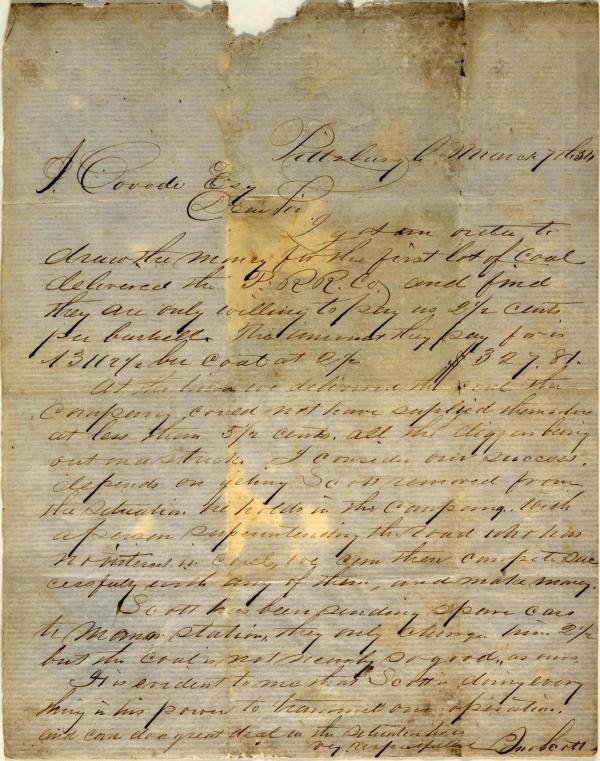 Pittsburgh March 7th 54
J. Covode Esq
Dear Sir
I got an order to
draw the money for the first lot of Coal
delivered the P. R R. Co, and find
they are only willing to pay us 2½ cents
per bushell. The amount they pay for is
13112½ bu Coal at 2½ $327.81.
At the time we delivered the coal the
Company could not have suplied themselves
at less than 5½ cents. all the diggers being
out on a strike. I consider our success
depends on geting Scott removed from
the situation he holds in the Company. With
a person superintending the road who has
no interest in coal, we can then compete suc
cessfully with any of them, and make money.
Scott has been sending spare cars
to station, they only charge him 2½
but the coal is not nearly so good, as ours
It is evident to me that Scott is doing every
thing in his power to our operations
and can do a great deal in the situation he is
very respectfully Jno Scott